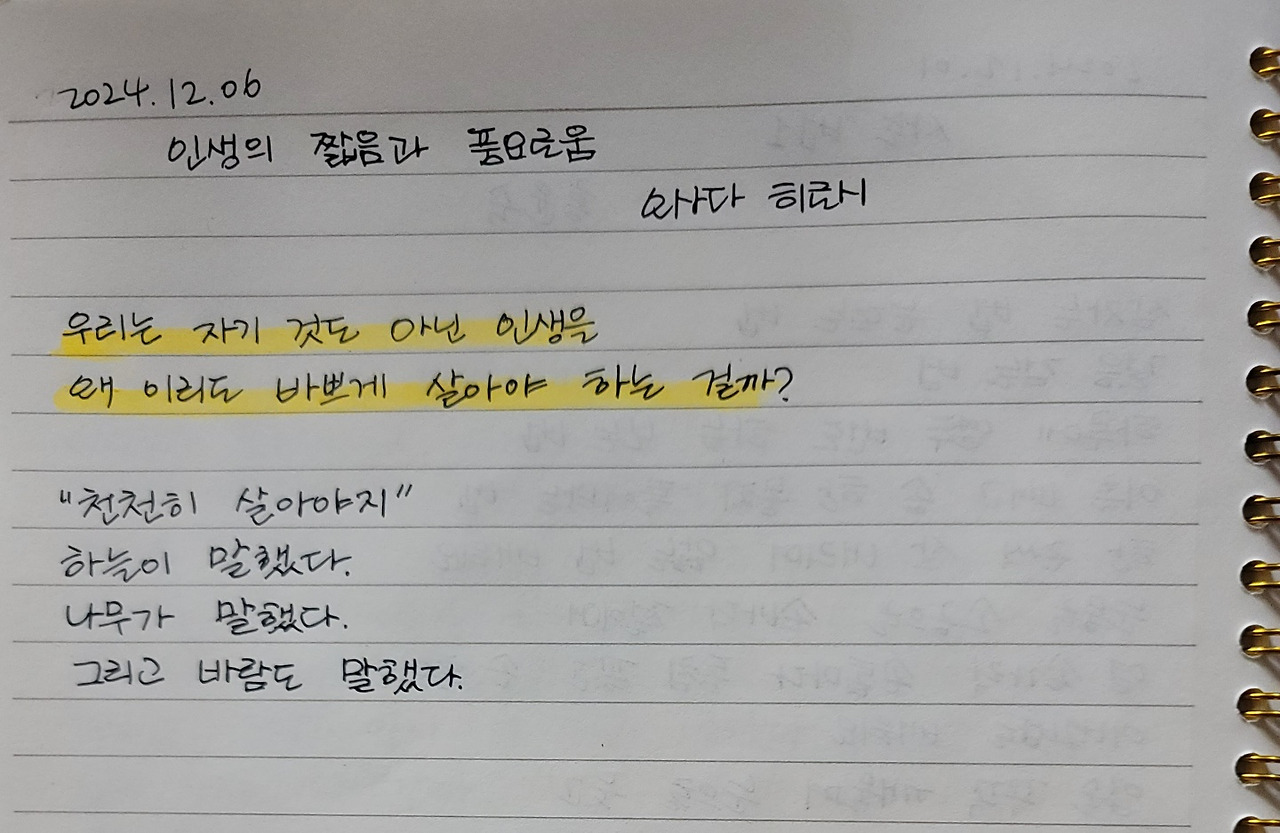 2024.12.06
인생의 짧음과 풍요로움
와사다 히로시
우리는 자기 것도 아닌 인생을
왜 이리도 바쁘게 살아야 하는 걸까?
"천천히 살아야지"
하늘이 말했다.
나무가 말했다.
그리고 바람도 말했다.